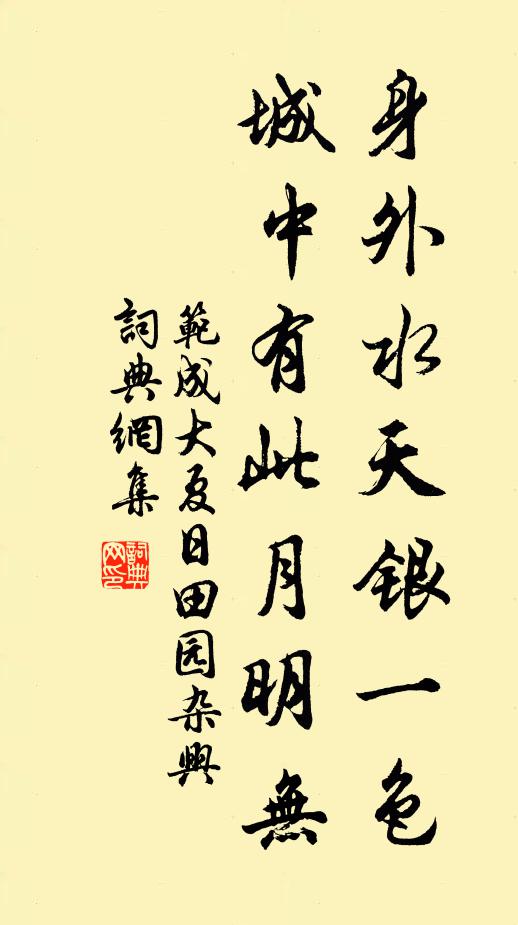 身外水天银一色
城中有此月明無
範成大夏日田园杂興
詞典網集
詞典网印